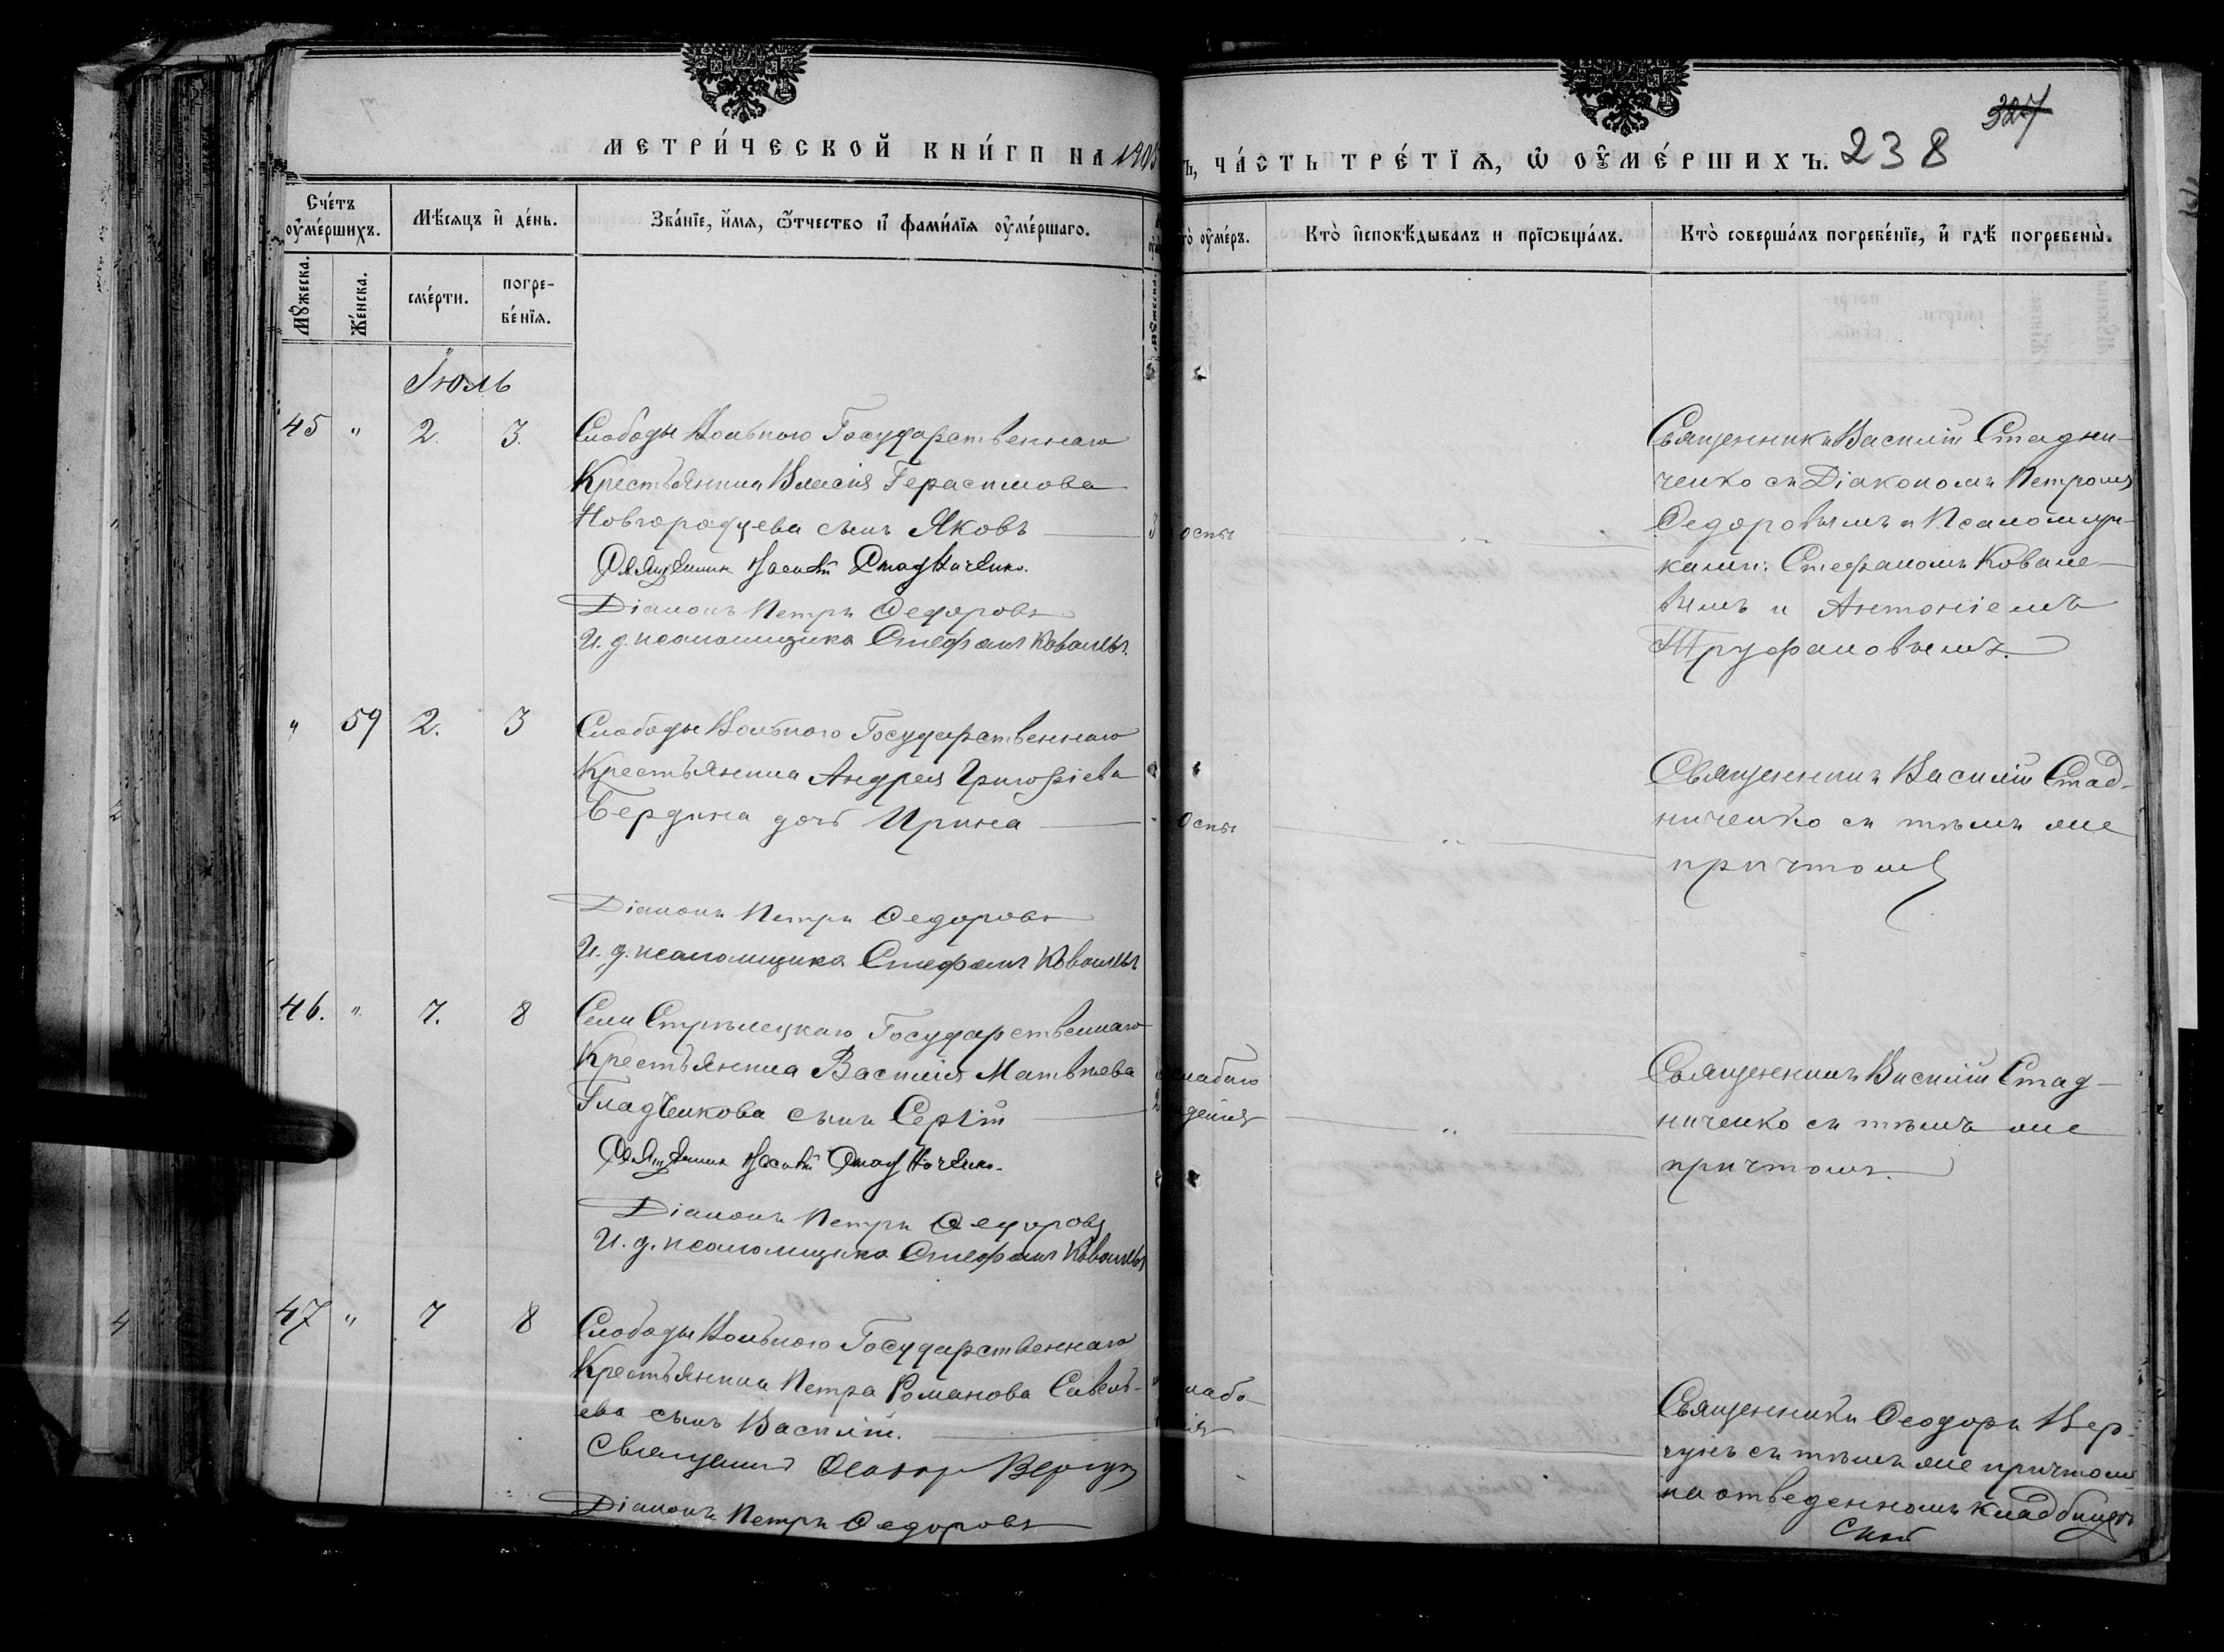 МЕТРИ́ЧЕСКОЙ КНИ́ГИ НА 1905
Ъ, ЧА́СТЬ ТРЕ́ТЇѦ, Ѽ ОУ҆МЕ́РШИХЪ. 238 327
Сче́тъ оу҆ме́ршихъ.
Мѣ́сяцъ и҆ де́нь.
Зва́нїе, и҆́мя, ѻ҆́тчество и҆ фами́лїя оу҆ме́ршаго.
то̀ оу҆ме́ръ.
Кто̀ и҆сповѣ́дывалъ и прїѡбща́лъ.
Кто̀ соверша́лъ погребе́нїе, и҆ гдѣ̀ погребены̀.
Мꙋ́жеска.
Же́нска.
сме́рти.
погре-
бе́нїя.
Іюль
45 " 2. 3.
Слободы Вольного Государственнаго
Крестьянина Власія Герасимова
Новгородцева сынъ Яковъ
Священникъ Василій Стадниченко.
Діаконъ Петръ Ѳедоровъ
И. д. псаломщика Стефанъ Ковалевъ.
3 оспы
Священникъ Василій Стадни-
ченко съ Діакономъ Петромъ
Ѳедоровымъ и Псаломщи-
ками: Стефаномъ Ковале-
вымъ и Антоніемъ
Труфановымъ.
" 59 2. 3
Слободы Вольного Государственнаго
Крестьянина Андрея Григоріева
Бердина дочь Ирина
Діаконъ Петръ Ѳедоровъ
И. д. псаломщика Стефанъ Ковалевъ
Оспы
Священникъ Василій Стад-
ниченко съ тѣмъ же
причтомъ
46. " 7. 8
Села Стрѣлецкаго Государственнаго
Крестьянина Василія Матвѣева
Гладченкова сынъ Сергій
Священникъ Василій Стадниченко.
Діаконъ Петръ Ѳедоровъ
И. д. псаломщика Стефанъ Ковалевъ
лабаго
2 ждения
Священникъ Василій Стад-
ниченко съ тѣмъ же
причтомъ.
47 " 7 8
Слободы Вольного Государственнаго
Крестьянина Петра Романова Савель-
ева сынъ Василій.
Священникъ Ѳеодоръ Вергунъ
Діаконъ Петръ Ѳедоровъ
лабо-
ія
Священникъ Ѳеодоръ Вер-
гунъ съ тѣмъ же причтомъ
на отведенномъ кладбищѣ